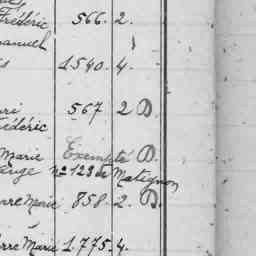 Frédéric 566. 2.
manuel
1540. 4.
567 2 D.
Frédéric
Marie Exempté D.
ange nº 123 de Matignon
rre Marie 858. 2. D.
erre Marie 1.775. 4.